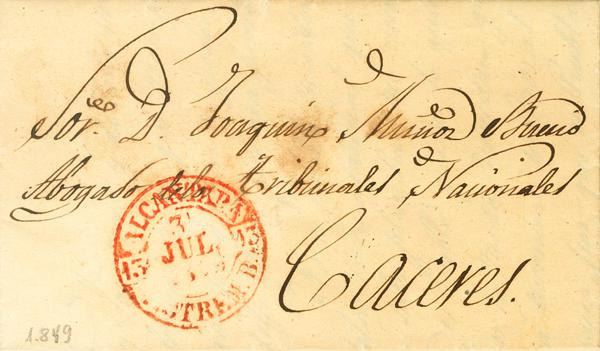 Sor. D. Joaquin Muñoz Bueno
Abogado de los Tribunales Nacionales
Caceres.
ALCANTARA
3
JUL
13
ESTREM. B.
1.849